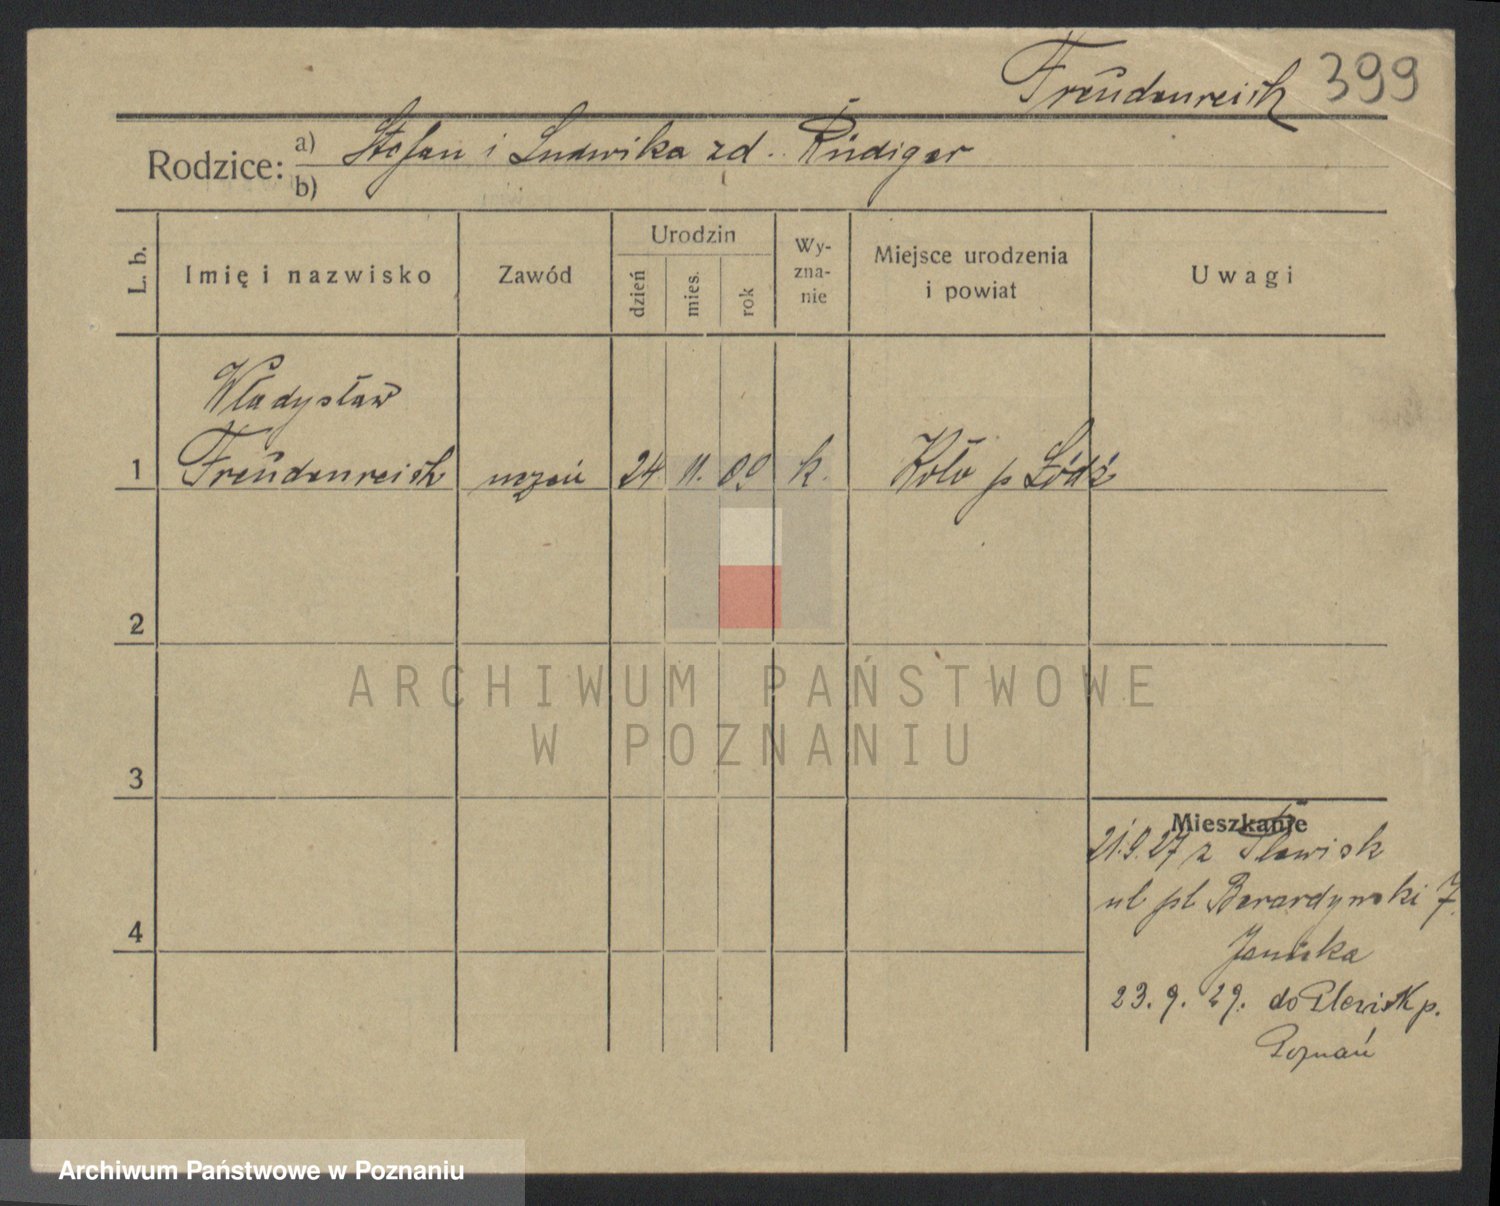 Freudenreich 399
Rodzice: a) Stefan i Ludwika zd. Rüdiger
b)
L. b. Imię i nazwisko Zawód Urodzin dzień mies. rok Wyznanie Miejsce urodzenia i powiat Uwagi
Władysław
1 Freudenreich uczeń 24 11. 09 k. Koło p Łódź
2
ARCHIWUM PAŃSTWOWE
W POZNANIU
3
Mieszkanie
21.9.27 z Plewisk
ul pl Berardyński 7.
4
23. 9. 29. do Plewisk p.
Poznań
Archiwum Państwowe w Poznaniu